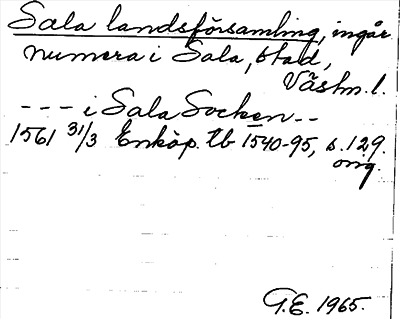 Sala landsförsamling, ingår
numera i Sala, stad,
Västm. l.
--- i Sala Socken --
1561 31/3 Enköp. tb 1540-95, s. 129.
orig.
G.E. 1965.